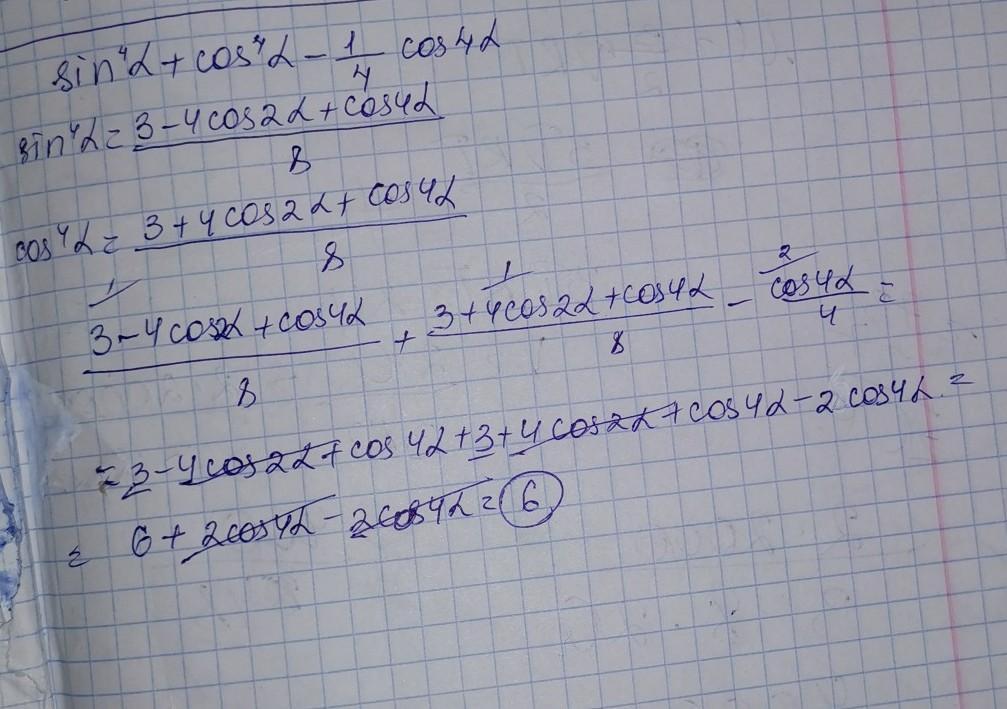 sin⁴α + cos⁴α − 1/4 cos4α
sin⁴α = (3 − 4cos2α + cos4α)/8
cos⁴α = (3 + 4cos2α + cos4α)/8
(3 − 4cos2α + cos4α)/8 ^1 + (3 + 4cos2α + cos4α)/8 ^1 − cos4α/4 ^2 =
= 3 − 4cos2α + cos4α + 3 + 4cos2α + cos4α − 2cos4α =
= 6 + 2cos4α − 2cos4α = 6